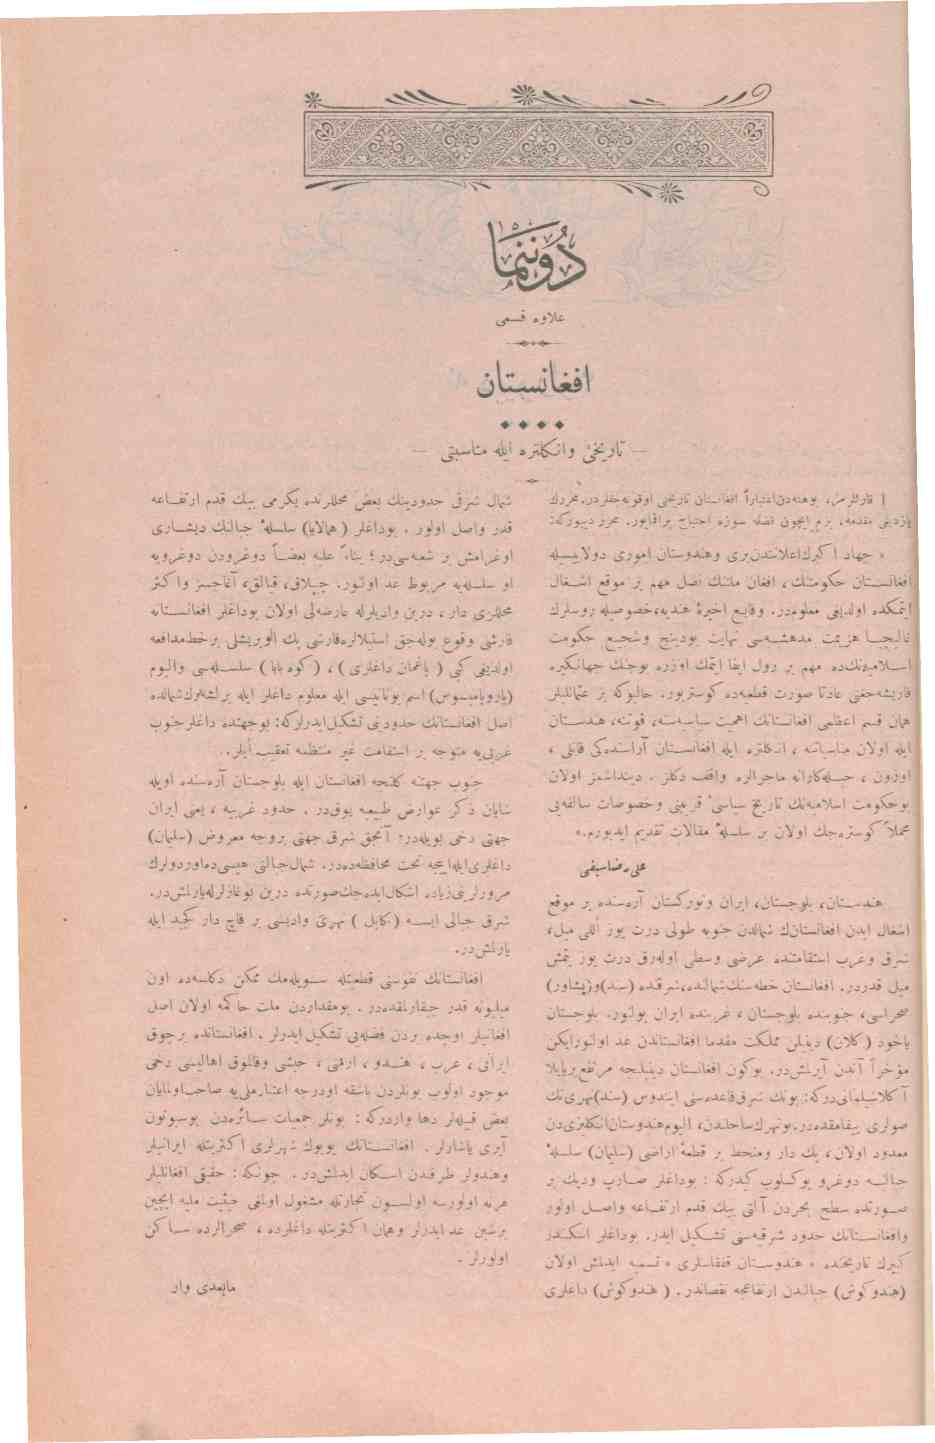 دوننما
علاوه قسمی
افغانستان
— تاریخی وانكلتره ایله مناسبتی —
[ قارئلرمز، بوهفته‌دن اعتباراً افغانستان تاریخنی اوقویه‌جقلردر. محررك
یازدیغی مقدمه، بزم ایچون فضله سوزه احتیاج براقمایور. محرر دییوركه:
« جهاد اكبرك اعلانندن‌بری وهندوستان اموری دولاییسیله
افغانستان حكومتنك، افغان ملتنك نصل مهم بر موقع اشغال
ایتمكده اولدیغی معلومدر. وقایع اخیرهٔ هندیه، خصوصیله روسلرك
غالیچیا هزیمت مدهشه‌سی نهایت بودینج وشجیع حكومت
اسلامیه‌نك‌ده مهم بر رول ایفا ایتمك اوزره بوجنك جهانكیره
قاریشه‌جغنی عادتا صورت قطعیه‌ده كوستریور. حالبوكه بز عثمانلیلر
همان قسم اعظمی افغانستانك اهمیت سیاسیه‌سنه، قوتنه، هندستان
ایله اولان مناسباتنه ، انكلتره ایله افغانستان آراسنده‌كی قانلی ،
اوزون ، حیله‌كارانه ماجرالره واقف دكلز . دینداشمز اولان
بوحكومت اسلامیه‌نك تاریخ سیاسیٔ قریبنی وخصوصات سالفه‌یی
مجملاً كوستره‌جك اولان بر سلسلهٔ مقالات تقدیم ایدیورم.»
علی رضا سیفی
هندستان، بلوجستان، ایران وتوركستان آره‌سنده بر موقع
اشغال ایدن افغانستانك شمالدن جنوبه طولی درت یوز اللی میل،
شرق وغرب استقامتنده عرضی وسطی اوله‌رق درت یوز یتمش
میل قدردر. افغانستان خطه‌سنك شمالنده، شرقنده (سند) و(پشاور)
صحراسی، جنوبنده بلوجستان ، غربنده ایران بولنور. بلوجستان
یاخود (كلات) دینیلن مملكت مقدما افغانستاندن عد اولنورایكن
مؤخراً آندن آیرلمش‌در. بوكون افغانستان دینیلنجه مرتفع بریایلا
آكلاشیلمالی‌دركه: بونك شرق قاعده‌سنی ایندوس (سند) نهرینك
صولری ییقامقده‌در. بونهرك ساحلندن، الیوم هندوستان انكلیزی‌دن
معدود اولان، پك دار ومنحط بر قطعهٔ اراضی (سلیمان) سلسلهٔ
جبالنه دوغرو یوكسلوب كیدركه : بوداغلر صارپ ودیك بر
صورتده سطح بحردن آلتی بیك قدم ارتفاعه واصل اولور
وافغانستانك حدود شرقیه‌سنی تشكیل ایدر. بوداغلر اسكندر
كبیرك تاریخنده « هندوستان قفقاسلری » تسمیه ایدلمش اولان
(هندوكوش) جبالندن ارتفاعجه نقصاندر. ( هندوكوش) داغلری
شمال شرقی حدودینك بعض محللرنده یكرمی بیك قدم ارتفاعه
قدر واصل اولور . بوداغلر (همالایا) سلسلهٔ جبالنك دیشاری
اوغرامش بر شعبه‌سی‌در؛ بناءً علیه بعضاً دوغرودن دوغرویه
او سلسله‌یه مربوط عد اولنور. چیپلاق، قیالق، آغاجسز واكثر
محللری دار ، درین وادیلرله عارضه‌لی اولان بوداغلر افغانستانه
قارشی وقوع بوله‌جق استیلالره‌قارشی پك الویریشلی برخط مدافعه
اولدیغی كبی ( پاغمان داغلری ) ، (كوه بابا) سلسله‌سی والیوم
(پاروپامیسوس) اسم یونانیسی ایله معلوم داغلر ایله برلشه‌رك شمالده
اصل افغانستانك حدودینی تشكیل ایدرلركه: بوجهتده داغلرجنوب
غربی‌یه متوجه بر استقامت غیر منتظمه تعقیب ایلر..
جنوب جهتنه كلنجه افغانستان ایله بلوجستان آره‌سنده اویله
شایان ذكر عوارض طبیعیه یوق‌در. حدود غربیه ، یعنی ایران
جهتی دخی بویله‌در؛ آنجق شرق جهتی بروجه معروض (سلیمان)
داغلری‌ایله ایجه تحت محافظه‌ده‌در. شمال جبالنی هیسی‌ده اوردولرك
مرورلرینی زیاده اشكال ایده‌جك صورتده درین بوغازلرله یارلمش‌در.
شرق جبالی ایسه (كابل ) نهری وادیسی بر قاچ دار كچید ایله
یارلمش‌در.
افغانستانك نفوسنی قطعیتله سویله‌مك ممكن دكلسه‌ده اون
میلیونه قدر چیقارلمقده‌در . بومقداردن ملت حاكمه اولان اصل
افغانیلر اوچده بردن فضله‌یی تشكیل ایدرلر . افغانستانده برچوق
ایرانی ، عرب ، هندو ، ارمنی ، حبشی وقالموق اهالیسی دخی
موجود اولوب بونلردن باشقه اودرجه اعتبار ملی‌یه صاحب اولمایان
بعض قبیله‌لر دها واردركه : بونلر جمعیات سائره‌دن بوسبوتون
آیری یاشارلر . افغانستانك بویوك شهرلری اكثریتله ایرانیلر
وهندولر طرفندن اسكان ایدلمش‌در . چونكه : حقیقی افغانلیلر
هرنه اولورسه اولسون تجارتله مشغول اولمغی حیثیت ملیه ایچین
برشین عد ایدرلر وهمان اكثریتله داغلرده ، صحرالرده ساكن
اولورلر .
مابعدی وار